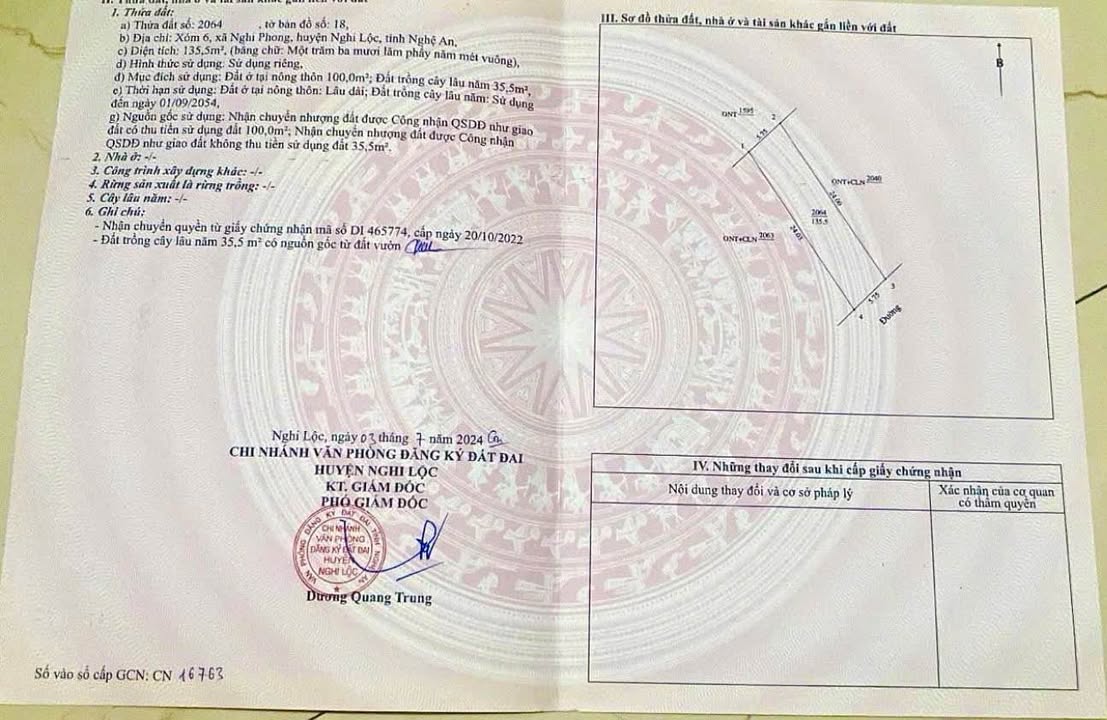 1. Thửa đất:
a) Thửa đất số: 2064 , tờ bản đồ số: 18,
b) Địa chỉ: Xóm 6, xã Nghi Phong, huyện Nghi Lộc, tỉnh Nghệ An,
c) Diện tích: 135,5m², (bằng chữ: Một trăm ba mươi lăm phẩy năm mét vuông),
d) Hình thức sử dụng: Sử dụng riêng,
đ) Mục đích sử dụng: Đất ở tại nông thôn 100,0m²; Đất trồng cây lâu năm 35,5m²,
e) Thời hạn sử dụng: Đất ở tại nông thôn: Lâu dài; Đất trồng cây lâu năm: Sử dụng
đến ngày 01/09/2054,
g) Nguồn gốc sử dụng: Nhận chuyển nhượng đất được Công nhận QSDĐ như giao
đất có thu tiền sử dụng đất 100,0m²; Nhận chuyển nhượng đất được Công nhận
QSDĐ như giao đất không thu tiền sử dụng đất 35,5m².
2. Nhà ở: -/-
3. Công trình xây dựng khác: -/-
4. Rừng sản xuất là rừng trồng: -/-
5. Cây lâu năm: -/-
6. Ghi chú:
- Nhận chuyển quyền từ giấy chứng nhận mã số DI 465774, cấp ngày 20/10/2022
- Đất trồng cây lâu năm 35,5 m² có nguồn gốc từ đất vườn
Nghi Lộc, ngày 03 tháng 7 năm 2024
CHI NHÁNH VĂN PHÒNG ĐĂNG KÝ ĐẤT ĐAI
HUYỆN NGHI LỘC
KT. GIÁM ĐỐC
PHÓ GIÁM ĐỐC
VĂN PHÒNG ĐĂNG KÝ ĐẤT ĐAI TỈNH NGHỆ AN
CHI NHÁNH
VĂN PHÒNG
ĐĂNG KÝ ĐẤT ĐAI
HUYỆN
NGHI LỘC
Dương Quang Trung
Số vào sổ cấp GCN: CN 16763
III. Sơ đồ thửa đất, nhà ở và tài sản khác gắn liền với đất
B
ONT 1595
2
5.55
1
ONT+CLN 2040
24.00
2064
135.5
24.03
ONT+CLN 2063
3
5.75
4
Đường
IV. Những thay đổi sau khi cấp giấy chứng nhận
Nội dung thay đổi và cơ sở pháp lý
Xác nhận của cơ quan
có thẩm quyền